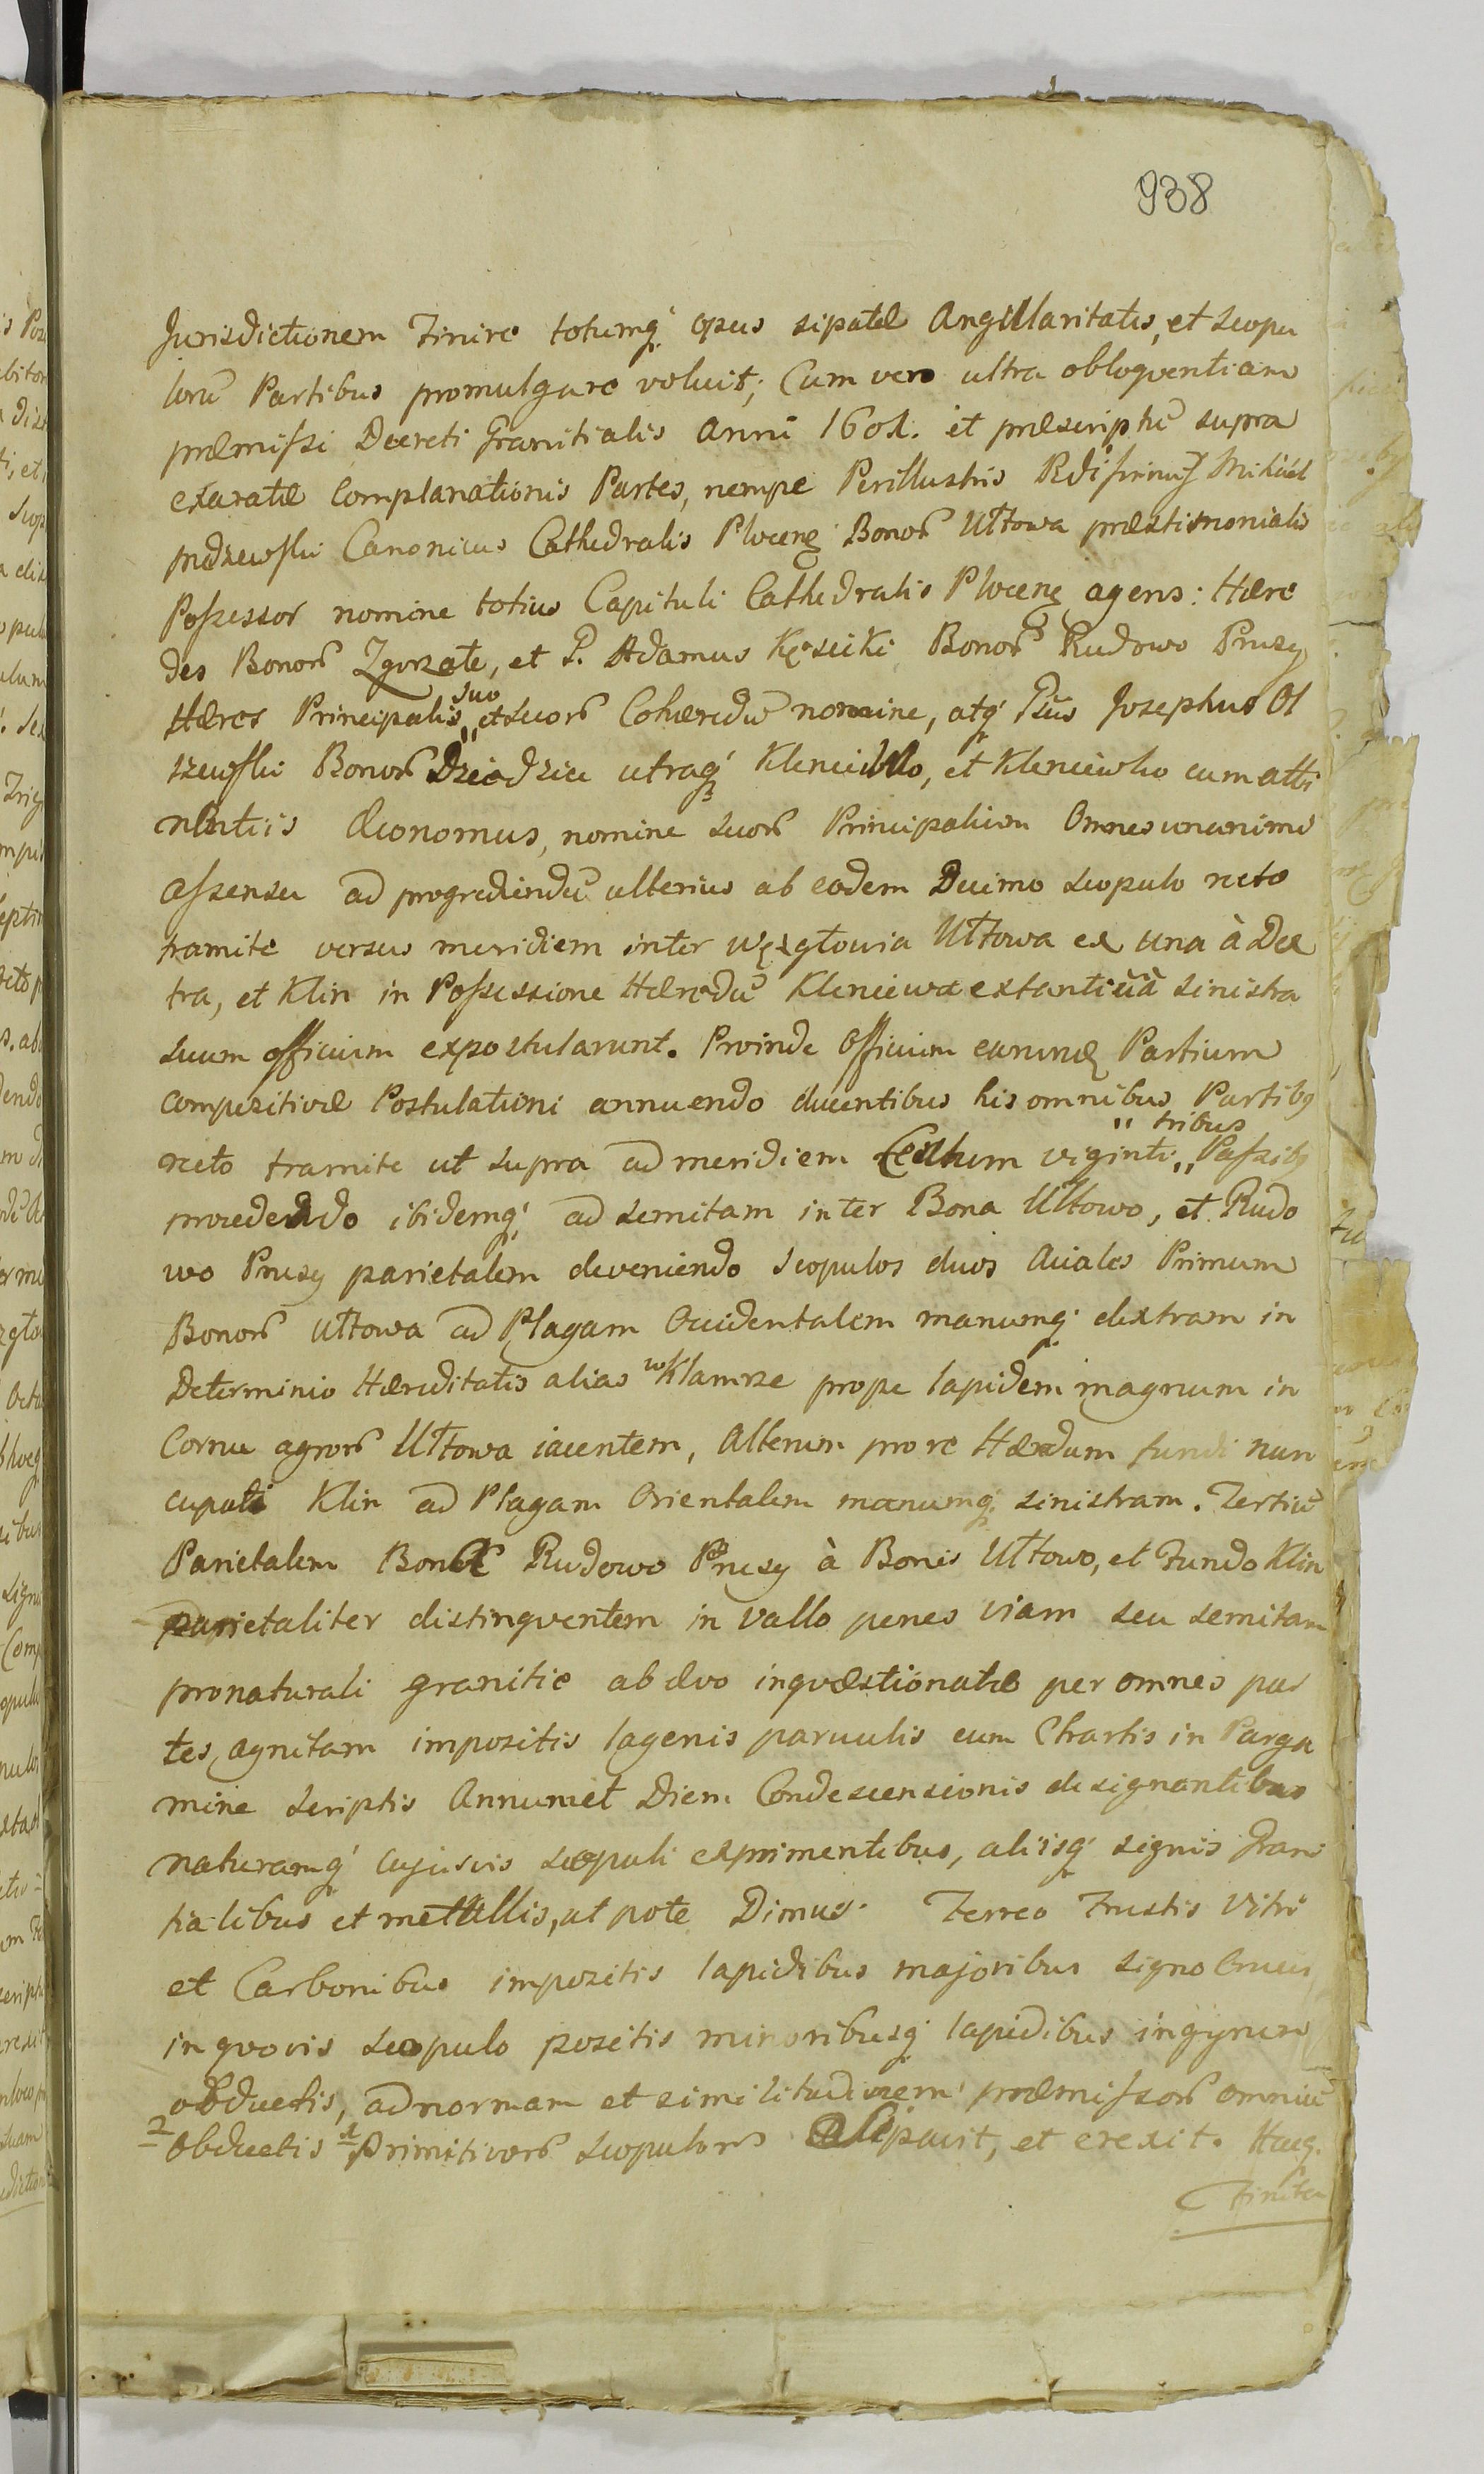 938
Jurisdictionem Finire totumq̃ opus sipatæ Angullaritatis, et Scopu
lorũ Partibus promulgare voluit; Cum vero ultra obloqventiam
præmissi Decreti Granitialis Anni 1601. et præscriptũ supra
exaratæ Complanationis Partes, nempe Perillustris Rdissimus Michael
Canonicus Cathedralis Plocens Bonor Ułtowa præstimonialis
Possessor nomine totius Capituli Cathedralis Plocens agens: Hære
des Bonor Zgorzałe, et P. Adamus Kęsicki Bonor Rudowo Prusy
Hæres Principalis suo et Suor Cohæredũ nomine, atq̃ Josephus Ol
szewski Bonor Dziedzice utraq̃ Kleniewo, et Kleniewko cum atti
nentiis Œconomus, nomine Suor Principalium Omnes unanimi
assensu ad progrediendũ ulterius ab eodem Decimo Scopulo recto
tramite versus meridiem inter węzgłowia Ułtowa ex una à Dex
tra, et Klin in Possessione Hæredũ Kleniewa extantiũ à sinistra
suum officium expostularunt. Proinde Officium earund Partium
compositivæ Postulationi annuendo ducentibus his omnibus Partibq
recto tramite ut supra ad meridiem Centum viginti " tribus " Passibq
procedendo ibidemq̃ ad semitam inter Bona Ułtowo, et Rudo
wo Prusy parietalem deveniendo Scopulos duos Aciales Primum
Bonor Ułtowa ad Plagam Occidentalem manumq̃ dextram in
Determinio Hæreditatis alias w Klamrze prope lapidem magnum in
Cornu agror Ułtowa iacentem, Alterum pro re Hæredum fundi nun
cupati Klin ad Plagam Orientalem manumq̃ sinistram. Tertiũ
Parietalem Bonor Rudowo Prusy à Bonis Ułtowo, et Fundo Klin
parietaliter distingventem in Vallo penes viam seu semitam
pro naturali granitie ab ævo inqvæstionatæ per omnes par
tes agnitam impositis lagenis parvulis cum Chartis in Parga
mine scriptis Annum et Diem Condescensionis designantibus
naturamq̃ cujusvis Scopuli exprimentibus, aliisq̃ signis Grani
tialibus et metallis, ut pote Ferreo Frustis Vitri
et Carbonibus impositis lapidibus majoribus signo Crucis
in qvovis Scopulo positis minoribusq̃ lapidibus in gyrum
obductis, ad normam et similitudinem præmissor omniũ
2 Obductis 1 Primitivor Scopulor sipavit, et erexit. Hacq.
Finita